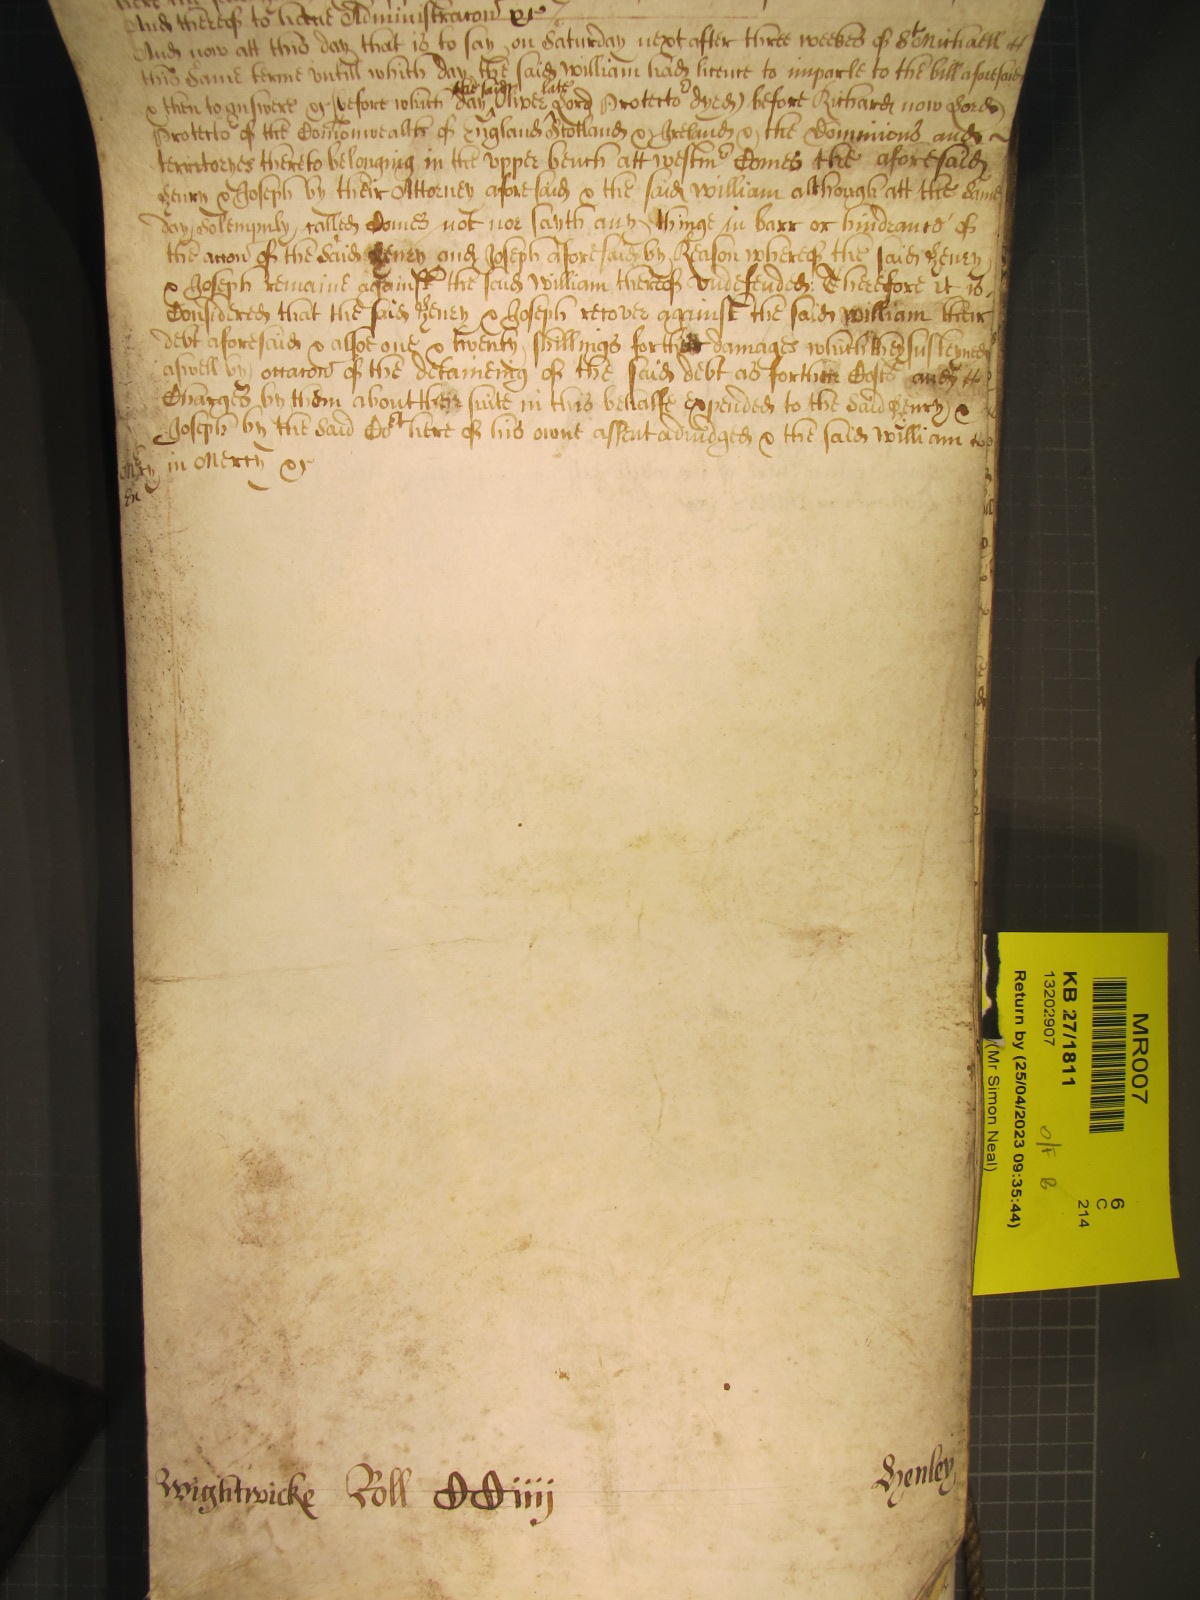 And thereof to have Administracon &c
And now att this day that is to say on Saturday next after three weekes of St Michaell
this same terme untill which day the said William had licence to imparle to the bill aforesaid
& then to answere &c (before which day the said Oliver late Lord Protector dyed) before Richard now Lord
Protector of the Comonwealth of England Scotland & Ireland & the Dominions and
territoryes thereto belonging in the upper bench att westmr Comes the aforesaid
Henry & Joseph by their Attorney aforesaid & the said William although att the same
day solempnly called Comes not nor sayth any thinge in barr or hindrance of
the accon of the said Henry and Joseph aforesaid by Reason whereof the said Henry
& Joseph remaine against the said William thereof undefended Therefore it is
Considered that the said Henry & Joseph recover against the said William their
debt aforesaid & alsoe one & twenty shillings for their damages which they susteyned
aswell by occacon of the deteineing of the said debt as for their Costs and
Charges by them about their suite in this behalfe expended to the said Henry &
Joseph by the said Cort here of his owne assent adiudged & the said William
in Mercy &c
Wightwicke Roll CCiiij
Henley
MR007
KB 27/1811
13202907
Return by (25/04/2023 09:35:44)
(Mr Simon Neal)
6
C
214